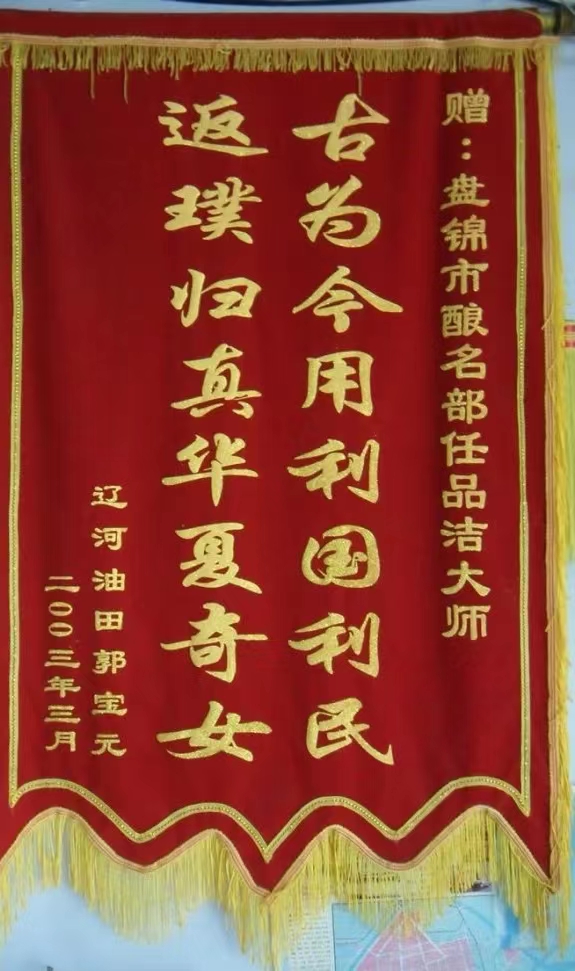 赠：盘锦市酿名部任品洁大师
古为今用利国利民
返璞归真华夏奇女
辽河油田郭宝元
二00三年三月